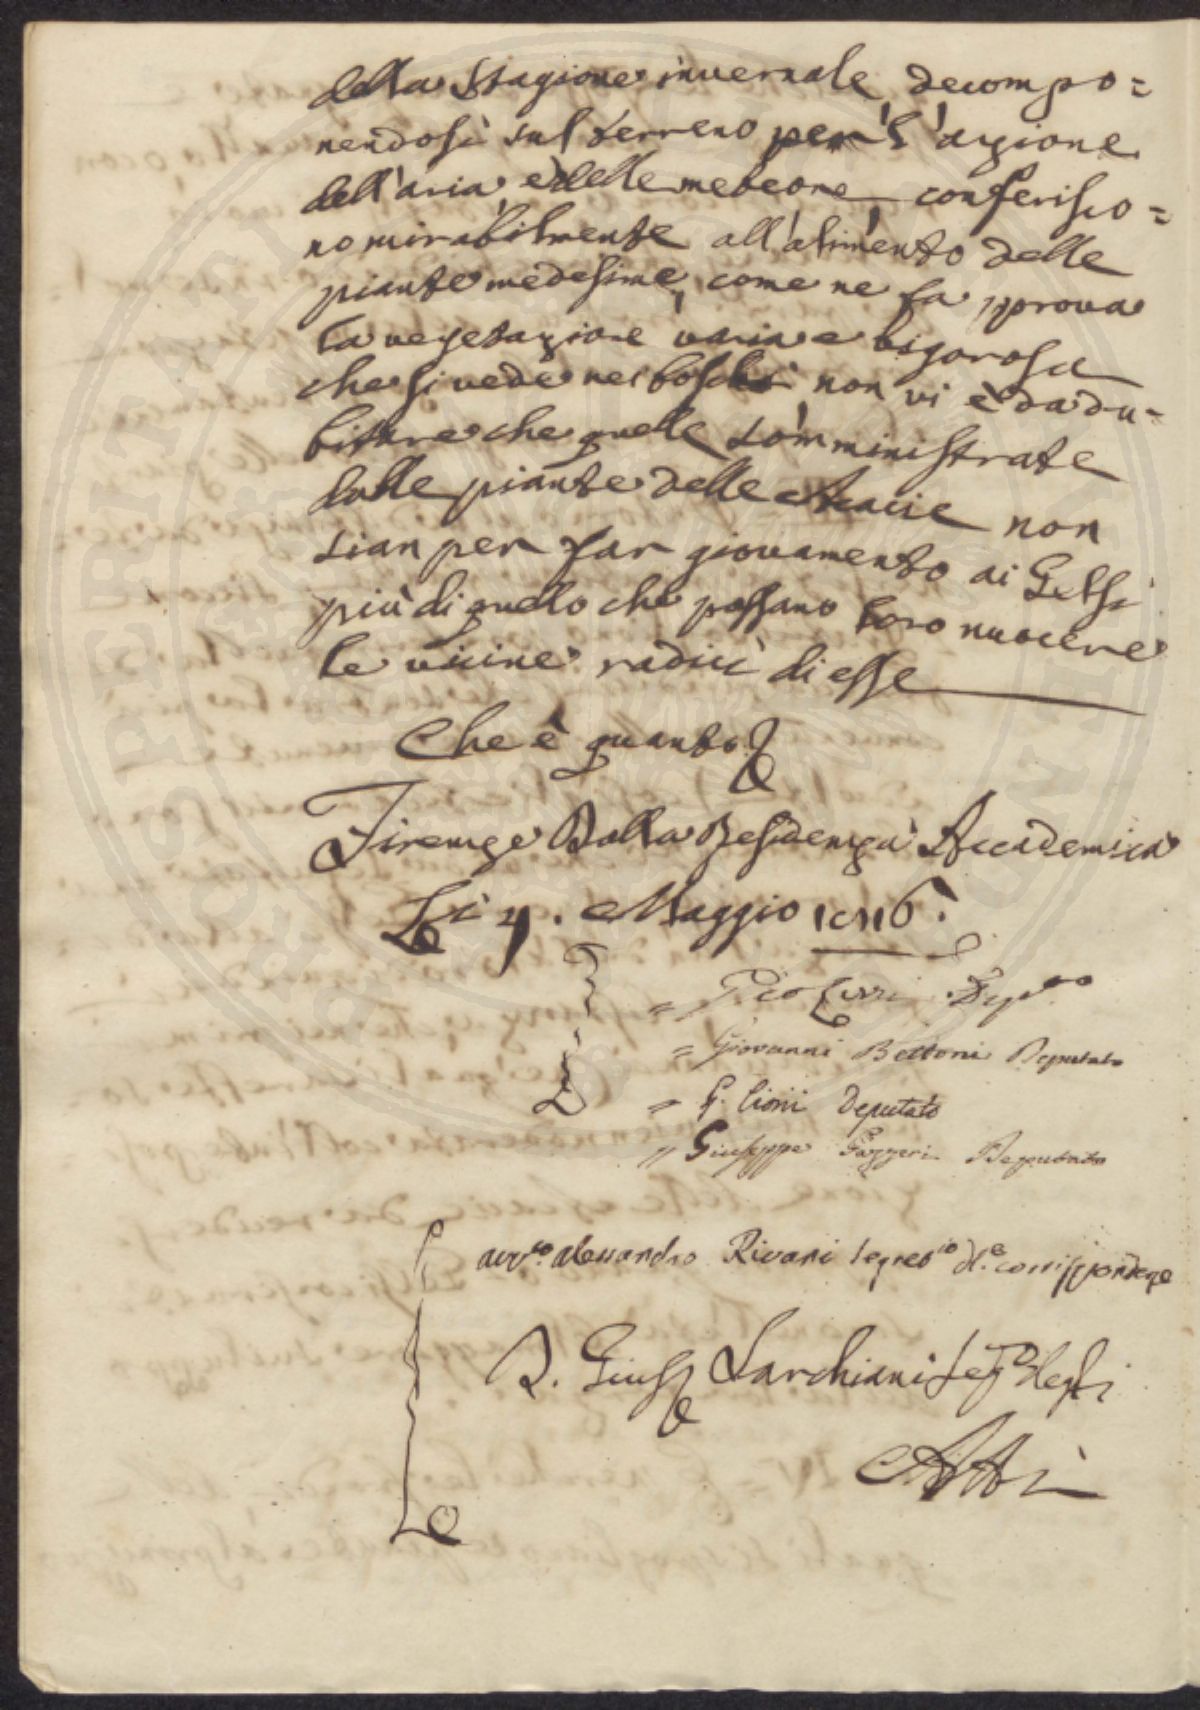 della Stagione invernale decompo=
nendosi sul terreno per l'azione
dell'aria, e delle meteore conferisco=
no mirabilmente all'alimento delle
piante medesime, come ne fa prova
la vegetazione varia e vigorosa
che si vede nei boschi non vi è da du=
bitare che quelle somministrate
dalle piante delle Acacie non
sian per far giovamento ai Gelsi
più di quello che possano loro nuocere
le vicine radici di esse
Che è quanto
Firenze Dalla Residenza Accademica
Li Maggio
=
= Giovanni Bettoni Deputato
= G. Cioni Deputato
= Giuseppe Gazzeri Deputato
Alessandro Rivani Segret.io d.e corrispondenze
D. Gius.e Sarchiani Seg.o degli
Atti